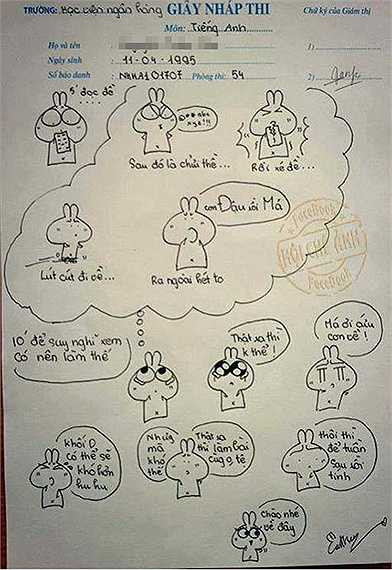 TRƯỜNG: Học viện ngân hàng GIẤY NHÁP THI
Chữ ký của Giám thị
Môn: Tiếng Anh
Họ và tên
1)
Ngày sinh 11-04-1995
Số báo danh NHHA101707 Phòng thi: 54
2)
5' đọc đề
Sau đó là chửi thề...
Rồi xé đề...
Lút cút đi về...
con Đậu rồi Má
Ra ngoài hét to
FaceBook
HỘI CHẾ ẢNH
FaceBook
10' để suy nghĩ xem
có nên làm thế
Thật ra thì
k thể!
Má ơi cíu
con về!
khối D
có thể sẽ
khó hơn
hu hu
Nhưg
mà
khó
thế
Thật ra
thì làm bài
cug o tệ
thôi thì
để tuần
sau rồi
tính
Chào nhé
về đây